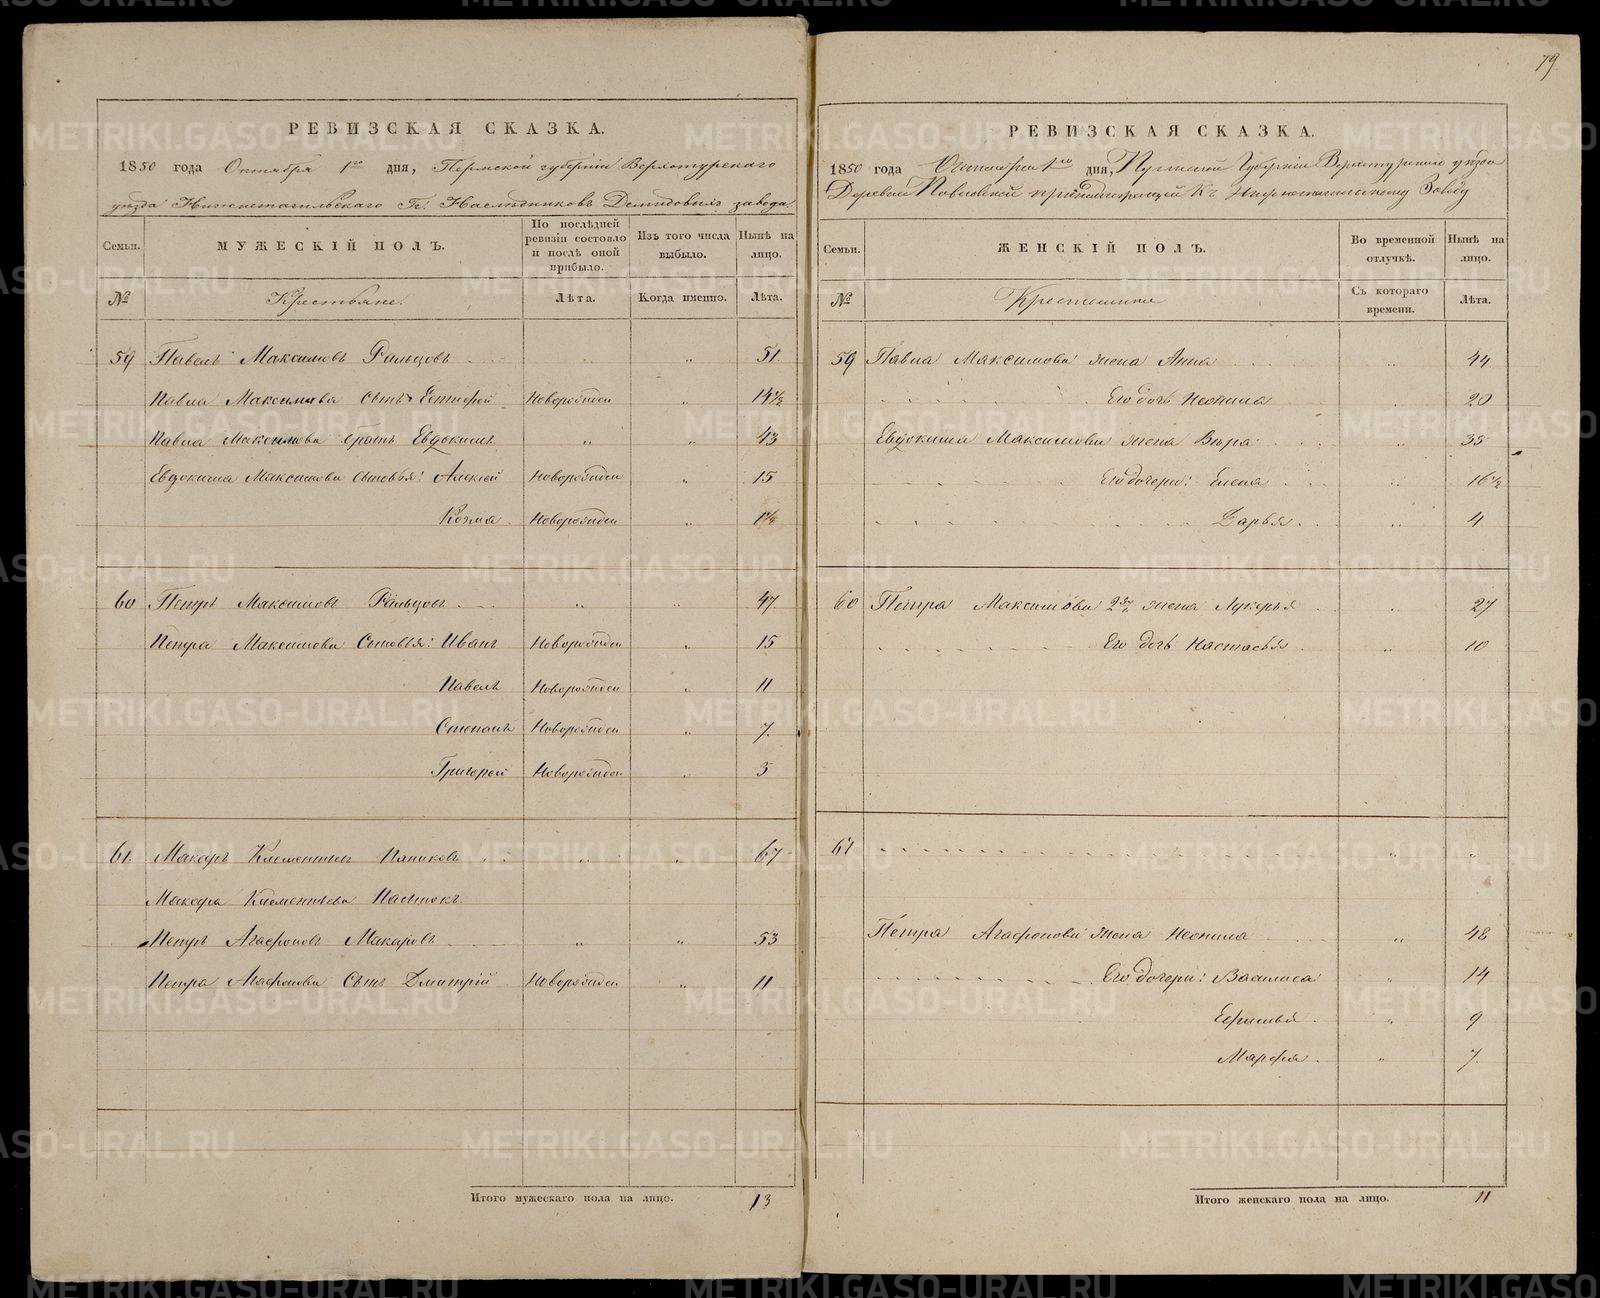 79
РЕВИЗСКАЯ СКАЗКА.
1850 года Октября 1го дня, Пермской губернiи Верхотурскаго
уѣзда Нижнетагильскаго Гг. Наслѣдниковъ Демидовыхъ завода.
Семьи. МУЖЕСКIЙ ПОЛЪ. По послѣдней ревизiи состояло и послѣ оной прибыло. Изъ того числа выбыло. Нынѣ на лицо.
№ Крестьяне. Лѣта. Когда именно. Лѣта.
59 Павелъ Максимовъ Ральцовъ „ „ 51
Павла Максимова сынъ Новорожден „ 14½
Павла Максимова братъ Евдокимъ „ „ 43
Евдокима Максимова сыновья: Алексѣй Новорожден „ 15
Козма Новорожден „ 1½
60 Петръ Максимовъ Ральцовъ „ „ 47
Петра Максимова Сыновья: Иванъ Новорожден „ 15
Павелъ Новорожден „ 11
Степанъ Новорожден „ 7.
Григорей Новорожден „ 3
61. Макаръ Клементьевъ Пяниковъ „ „ 67
Макара Клементьева Пасынокъ
Петръ Агафоновъ Макаровъ „ „ 53
Петра Агафонова Сынъ Дмитрiй Новорожден „ 11
Итого мужескаго пола на лицо. 13
РЕВИЗСКАЯ СКАЗКА.
1850 года Октября 1го дня, Пермской Губернiи Верхотурскаго уѣзда
Деревни принадлежащей Къ Нижнотагильскому Заводу
Семьи. ЖЕНСКIЙ ПОЛЪ. Во временной отлучкѣ. Нынѣ на лицо.
№ Крестьянки Съ котораго времени. Лѣта.
59 Павла Максимова жена Анна „ 44
Его дочь Неонила „ 20
Евдокима Максимова жена Вѣра „ 35
Его дочери: Елена „ 16½
Дарья „ 4
60 Петра Максимова 2я жена Лукерья „ 27
Его дочь Настасья „ 10
61 „ „
Петра Агафонова жена Неонила „ 48
Его дочери: Василиса „ 14
„ 9
Марфа „ 7.
Итого женскаго пола на лицо. 11
METRIKI.GASO-URAL.RU